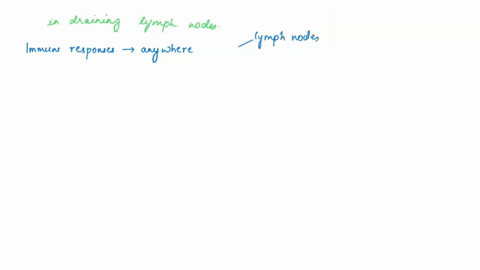 in draining lymph nodes.
Immun responses → anywhere
lymph nodes